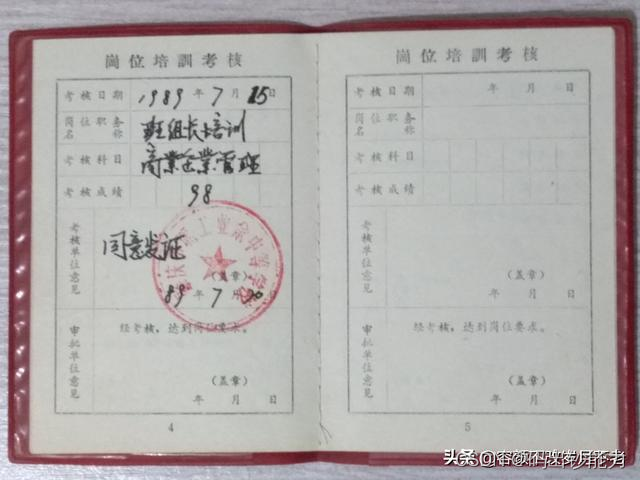 岗位培训考核
考核日期 1989年7月15日
岗位职务名称 班组长培训
考核科目 商业企业管理
考核成绩 98
考核单位意见 同意发证
(盖章)
89年7月20
审批单位意见 经考核，达到岗位要求。
(盖章)
年 月 日
4
岗位培训考核
考核日期 年 月 日
岗位职务名称
考核科目
考核成绩
考核单位意见
(盖章)
年 月 日
审批单位意见 经考核，达到岗位要求。
(盖章)
年 月 日
5